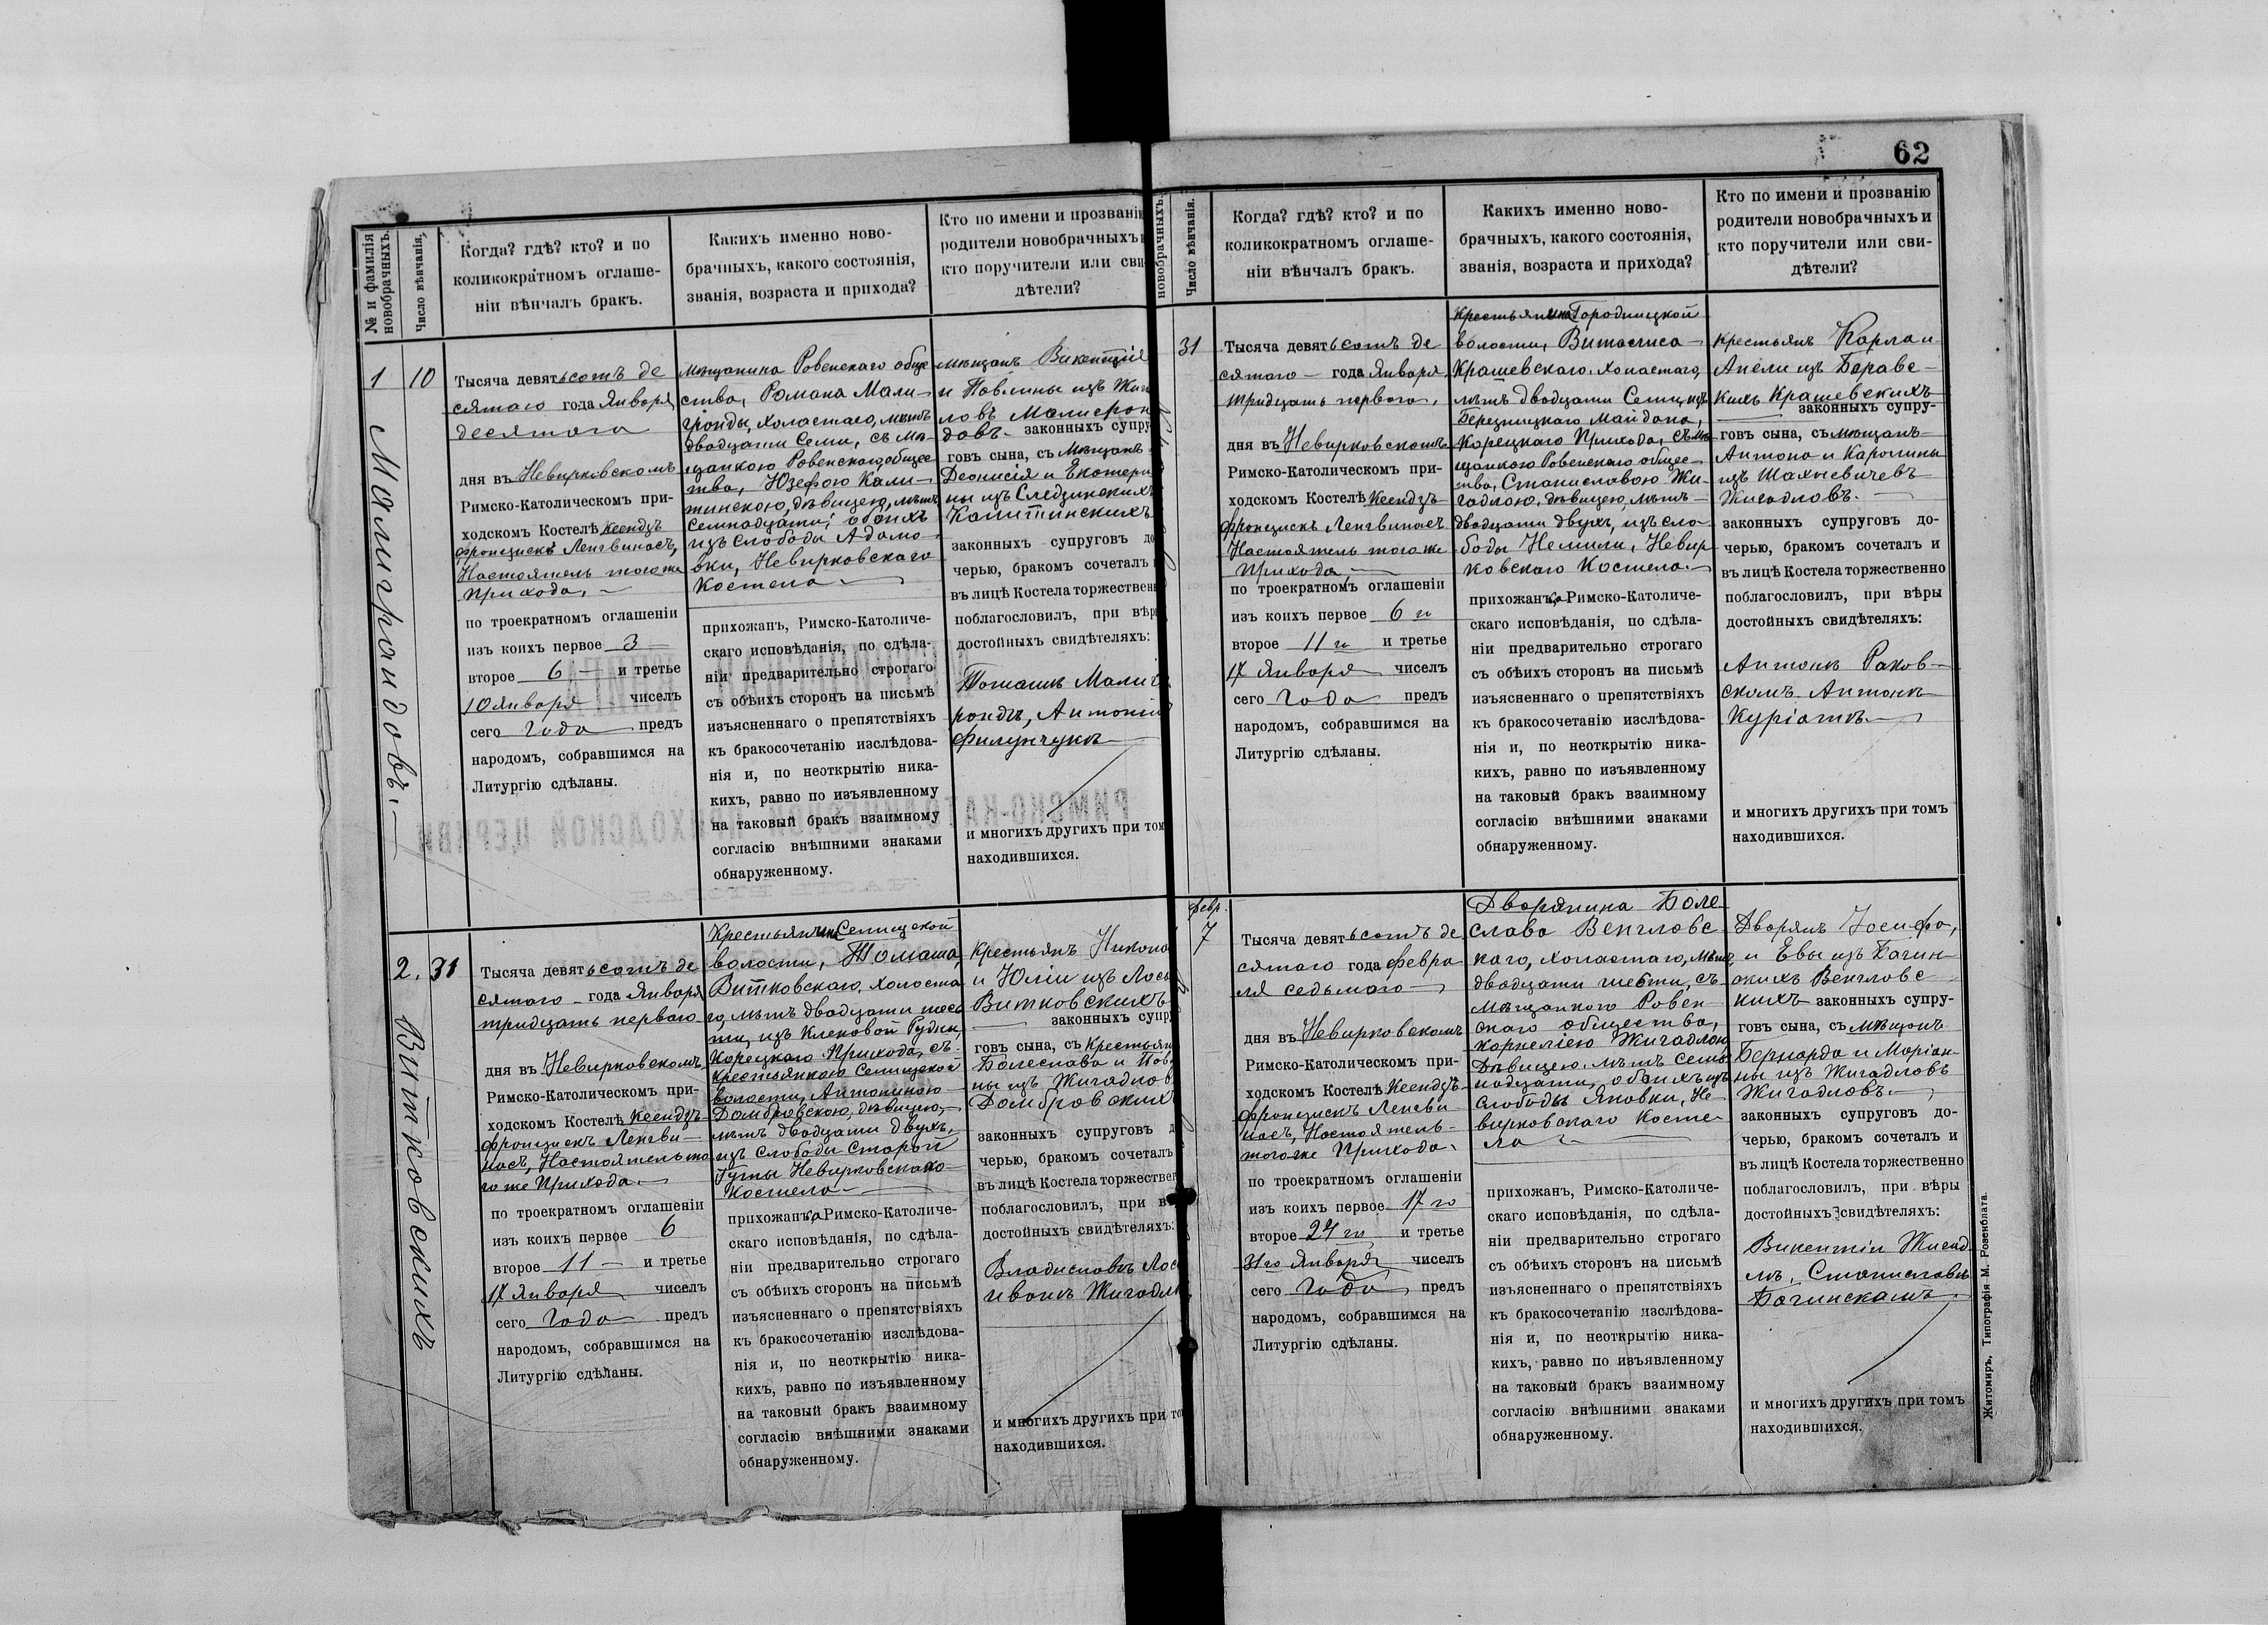 62
№ и фамилія
новобрачныхъ.
Число вѣнчанія.
Когда? гдѣ? кто? и по
коликократномъ оглаше-
ніи вѣнчалъ бракъ.
Какихъ именно ново-
брачныхъ, какого состоянія,
званія, возраста и прихода?
Кто по имени и прозванію
родители новобрачныхъ
кто поручители или сви-
дѣтели?
1
10
Малигрондовъ.
Тысяча девятьсотъ де
сятаго года Января
десятаго
дня въ Невирковскомъ
Римско-Католическомъ при-
ходскомъ Костелѣ Ксендзъ
Францискъ Ленгвинасъ,
Настоятель того же
Прихода,
по троекратномъ оглашеніи
изъ коихъ первое 3
второе 6 и третье
10 января чиселъ
сего года предъ
народомъ, собравшимся на
Литургію сдѣланы.
Мѣщанина Ровенскаго обще
ства, Романа Мали-
гронды, холостаго, лѣтъ
двадцати семи, съ мѣ-
щанкою Ровенскаго общес
тва, Юзефою Кали-
тинскою, дѣвицею, лѣтъ
семнадцати, обоихъ
изъ слободы Адамо-
вки, Невирковскаго
Костела
прихожанъ, Римско-Католиче-
скаго исповѣданія, по сдѣла-
ніи предварительно строгаго
съ обѣихъ сторонъ на письмѣ
изъясненнаго о препятствіяхъ
къ бракосочетанію изслѣдова-
нія и, по неоткрытію ника-
кихъ, равно по изъявленному
на таковый бракъ взаимному
согласію внѣшними знаками
обнаруженному.
мѣщанъ Викентія
и Павлины изъ Жига
ловъ Малигрон
довъ законныхъ супру
говъ сына, съ Мѣщанъ
Деонисія и Екатери
ны изъ Следзинскихъ
Калитинскихъ
законныхъ супруговъ до
черью, бракомъ сочеталъ
въ лицѣ Костела торжествен
поблагословилъ, при вѣр
достойныхъ свидѣтеляхъ:
Томашѣ Малиг
рондѣ, Антоніи
Филипчукѣ
и многихъ другихъ при том
находившихся.
2.
31
Витковскихъ
Тысяча девятьсотъ де
сятаго года Января
тридцать перваго
дня въ Невирковскомъ
Римско-Католическомъ при-
ходскомъ Костелѣ Ксендзъ
Францискъ Ленгви-
насъ, Настоятель то
го же Прихода
по троекратномъ оглашеніи
изъ коихъ первое 6
второе 11 и третье
17 января чиселъ
сего года предъ
народомъ, собравшимся на
Литургію сдѣланы.
Крестьянина Селищской
волости, Томаша,
Витковскаго, холоста
го, лѣтъ двадцати шес
ти, изъ Кленовой Рудни,
Корецкаго Прихода, съ
крестьянкою Селищской
волости, Антониною
Домбровскою, дѣвицею,
лѣтъ двадцати двухъ,
изъ слободы Старой
Гуты Невирковскаго
Костела
прихожанъ Римско-Католиче-
скаго исповѣданія, по сдѣла-
ніи предварительно строгаго
съ обѣихъ сторонъ на письмѣ
изъясненнаго о препятствіяхъ
къ бракосочетанію изслѣдова-
нія и, по неоткрытію ника-
кихъ, равно по изъявленному
на таковый бракъ взаимному
согласію внѣшними знаками
обнаруженному.
Крестьянъ Никола
и Юліи изъ Лось
Витковскихъ
законныхъ супр
говъ сына, съ Крестьян
Болеслава и Пав
ны изъ Жигадлов
Домбровских
законныхъ супруговъ д
черью, бракомъ сочеталъ
въ лицѣ Костела торжествен
поблагословилъ, при в
достойныхъ свидѣтеляхъ:
Владиславѣ Лос
Иванѣ Жигадл
и многихъ другихъ при то
находившихся.
новобрачныхъ.
Число вѣнчанія.
Когда? гдѣ? кто? и по
коликократномъ оглаше-
ніи вѣнчалъ бракъ.
Какихъ именно ново-
брачныхъ, какого состоянія,
званія, возраста и прихода?
Кто по имени и прозванію
родители новобрачныхъ и
кто поручители или сви-
дѣтели?
31
Тысяча девятьсотъ де
сятаго года Января
тридцать перваго,
дня въ Невирковскомъ
Римско-Католическомъ при-
ходскомъ Костелѣ Ксендзъ
Францискъ Ленгвинасъ
Настоятель того же
Прихода
по троекратномъ оглашеніи
изъ коихъ первое 6 го
второе 11 го и третье
17 Января чиселъ
сего года предъ
народомъ, собравшимся на
Литургію сдѣланы.
Крестьянина Городницкой
волости, Витослава
Крашевскаго, холостаго,
лѣтъ двадцати семи, изъ
Березницкаго Майдана,
Корецкаго Прихода, съ мѣ
щанкою Ровенскаго общес-
тва, Станиславою Жи-
гадлою, дѣвицею, лѣтъ
двадцати двухъ, изъ сло-
боды Немили, Невир
ковскаго Костела.
прихожанъ Римско-Католиче-
скаго исповѣданія, по сдѣла-
ніи предварительно строгаго
съ обѣихъ сторонъ на письмѣ
изъясненнаго о препятствіяхъ
къ бракосочетанію изслѣдова-
нія и, по неоткрытію ника-
кихъ, равно по изъявленному
на таковый бракъ взаимному
согласію внѣшними знаками
обнаруженному.
Крестьянъ Карла и
Анели изъ Боравс-
кихъ Крашевскихъ
законныхъ супру-
говъ сына, съ мѣщанъ
Антона и Каролины
изъ Шахневичевъ
Жигадловъ.
законныхъ супруговъ до-
черью, бракомъ сочеталъ и
въ лицѣ Костела торжественно
поблагословилъ, при вѣры
достойныхъ свидѣтеляхъ:
Антонѣ Раков-
скомъ Антонѣ
Куріатѣ
и многихъ другихъ при томъ
находившихся.
Февр.
7
Тысяча девятьсотъ де
сятаго года Февра
ля седьмаго
дня въ Невирковскомъ
Римско-Католическомъ при-
ходскомъ Костелѣ Ксендзъ
Францискъ Ленгви-
насъ, Настоятель
того же Прихода.
по троекратномъ оглашеніи
изъ коихъ первое 17 го
второе 24 го и третье
31 го Января чиселъ
сего года предъ
народомъ, собравшимся на
Литургію сдѣланы.
Дворянина Боле-
слава Венгловс
каго, холостаго, лѣтъ
двадцати шести, съ
мѣщанкою Ровен-
скаго общества,
Корнеліею Жигадлою
Дѣвицею, лѣтъ семь
надцати, обоихъ изъ
слободы Яновки, Не-
вирковскаго Косте-
ла
прихожанъ, Римско-Католиче-
скаго исповѣданія, по сдѣла-
ніи предварительно строгаго
съ обѣихъ сторонъ на письмѣ
изъясненнаго о препятствіяхъ
къ бракосочетанію изслѣдова-
нія и, по неоткрытію ника-
кихъ, равно по изъявленному
на таковый бракъ взаимному
согласію внѣшними знаками
обнаруженному.
Дворянъ Іосифа,
и Евы изъ Багин-
скихъ Венгловс-
кихъ законныхъ супру-
говъ сына, съ мѣщанъ
Бернарда и Маріан-
ны изъ Жигадловъ
Жигадловъ.
законныхъ супруговъ до-
черью, бракомъ сочеталъ и
въ лицѣ Костела торжественно
поблагословилъ, при вѣры
достойныхъ свидѣтеляхъ:
Викентіи Жигад
лѣ, Станиславѣ
Багинскомъ
и многихъ другихъ при томъ
находившихся.
Житомиръ, Типографія М. Розенблата.